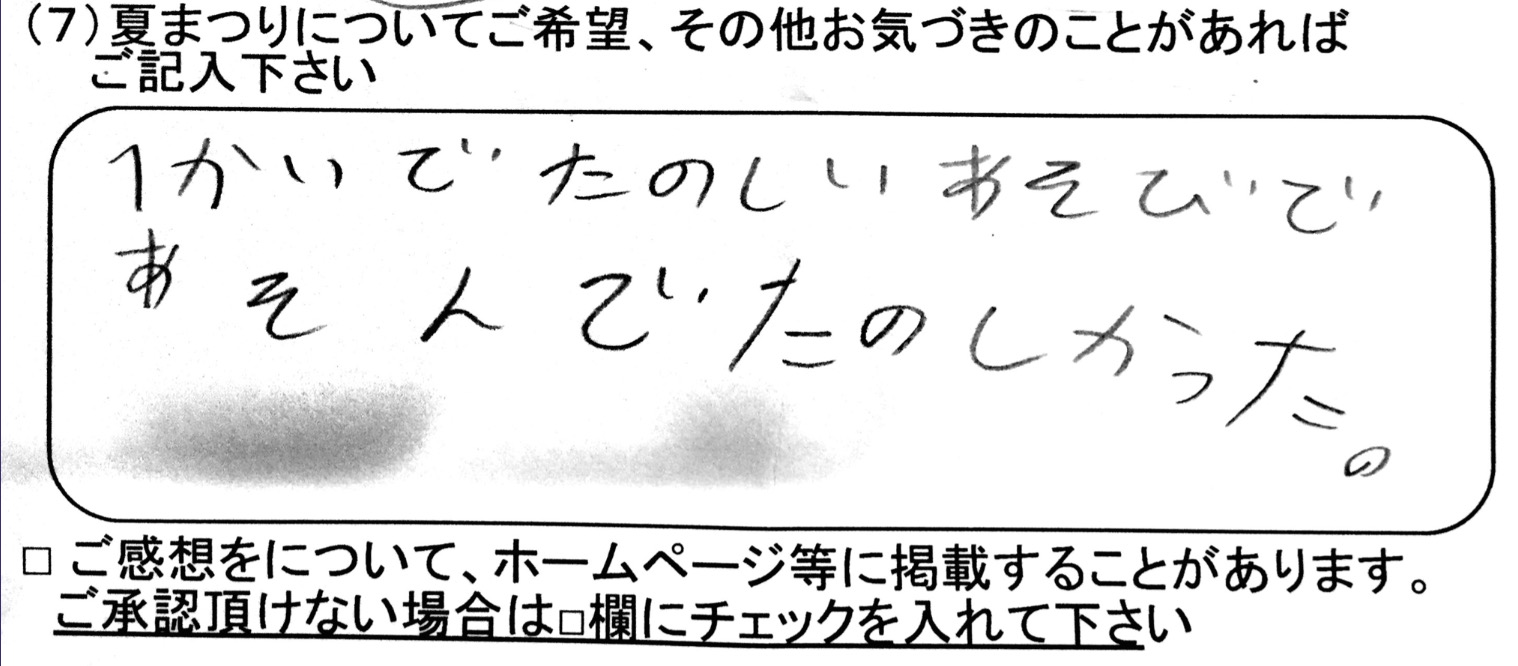 (7)夏まつりについてご希望、その他お気づきのことがあれば
ご記入下さい
1かいでたのしいあそびで
あそんでたのしかった。
□ ご感想をについて、ホームページ等に掲載することがあります。
ご承認頂けない場合は□欄にチェックを入れて下さい